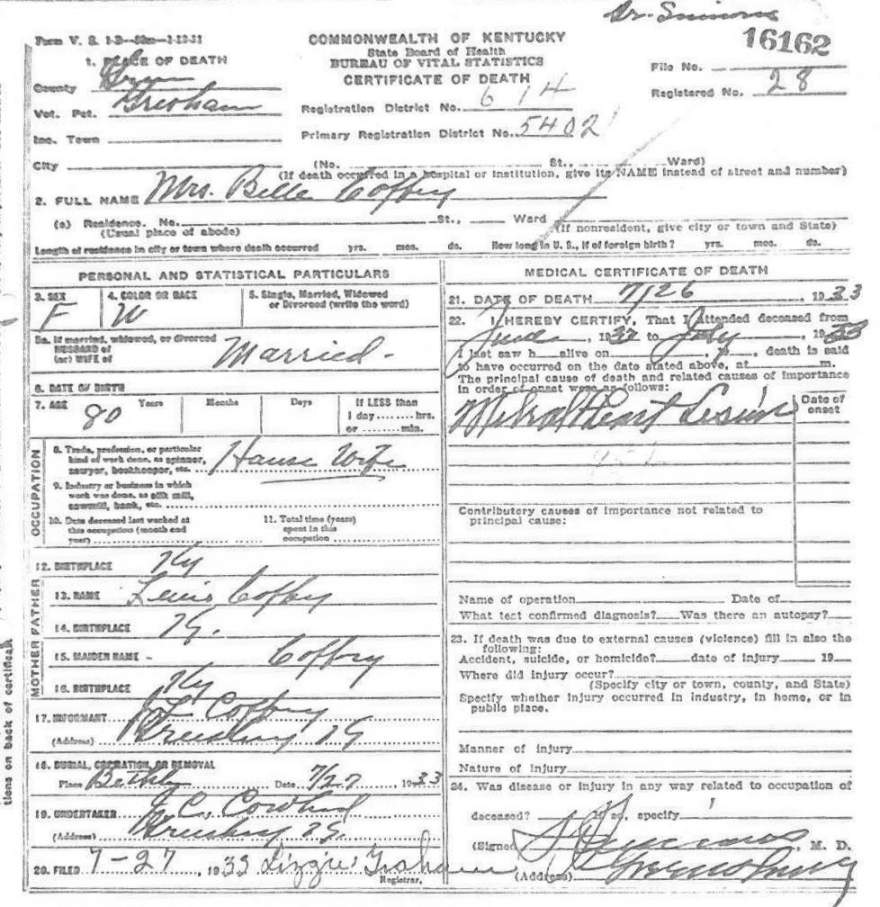 Dr. Simmons
Form V. S. 1-2—50m—1-12-31
COMMONWEALTH OF KENTUCKY
State Board of Health
BUREAU OF VITAL STATISTICS
CERTIFICATE OF DEATH
16162
File No.
Registered No. 28
1. PLACE OF DEATH
County Green
Vot. Pct. Gresham
Inc. Town
City
Registration District No. 614
Primary Registration District No. 5402
(No. St., Ward)
(If death occurred in a hospital or institution, give its NAME instead of street and number)
2. FULL NAME Mrs. Belle Coffey
(a) Residence. No. St., Ward
(Usual place of abode) (If nonresident, give city or town and State)
Length of residence in city or town where death occurred yrs. mos. ds. How long in U. S., if of foreign birth? yrs. mos. ds.
PERSONAL AND STATISTICAL PARTICULARS
3. SEX
F
4. COLOR OR RACE
W
5. Single, Married, Widowed
or Divorced (write the word)
5a. If married, widowed, or divorced
HUSBAND of
(or) WIFE of
Married.
6. DATE OF BIRTH
7. AGE 80 Years Months Days
If LESS than
1 day ........ hrs.
or ........ min.
OCCUPATION
8. Trade, profession, or particular
kind of work done, as spinner,
sawyer, bookkeeper, etc. House Wife
9. Industry or business in which
work was done, as silk mill,
sawmill, bank, etc.
10. Date deceased last worked at
this occupation (month and
year)
11. Total time (years)
spent in this
occupation
12. BIRTHPLACE Ky
FATHER
13. NAME Lewis Coffey
14. BIRTHPLACE Ky.
MOTHER
15. MAIDEN NAME - Coffey
16. BIRTHPLACE Ky
17. INFORMANT Coffey
(Address) Greensburg Ky
18. BURIAL, CREMATION, OR REMOVAL
Place Bethel Date 7/27 1933
19. UNDERTAKER J. C. Cowherd
(Address) Greensburg Ky.
20. FILED 7-27, 1933 Lizzie Graham
Registrar.
MEDICAL CERTIFICATE OF DEATH
21. DATE OF DEATH 7/26, 1933
22. I HEREBY CERTIFY, That I attended deceased from
June, 1932 to July, 1933
I last saw h alive on , 19 , death is said
to have occurred on the date stated above, at m.
The principal cause of death and related causes of importance
in order of onset were as follows:
Date of
onset
Mitral Heart Lesion
Contributory causes of importance not related to
principal cause:
Name of operation Date of
What test confirmed diagnosis? Was there an autopsy?
23. If death was due to external causes (violence) fill in also the
following:
Accident, suicide, or homicide? date of injury 19
Where did injury occur?
(Specify city or town, county, and State)
Specify whether injury occurred in industry, in home, or in
public place.
Manner of injury
Nature of injury
24. Was disease or injury in any way related to occupation of
deceased? If so, specify
(Signed) Simmons, M. D.
(Address) Greensburg
tions on back of certificate